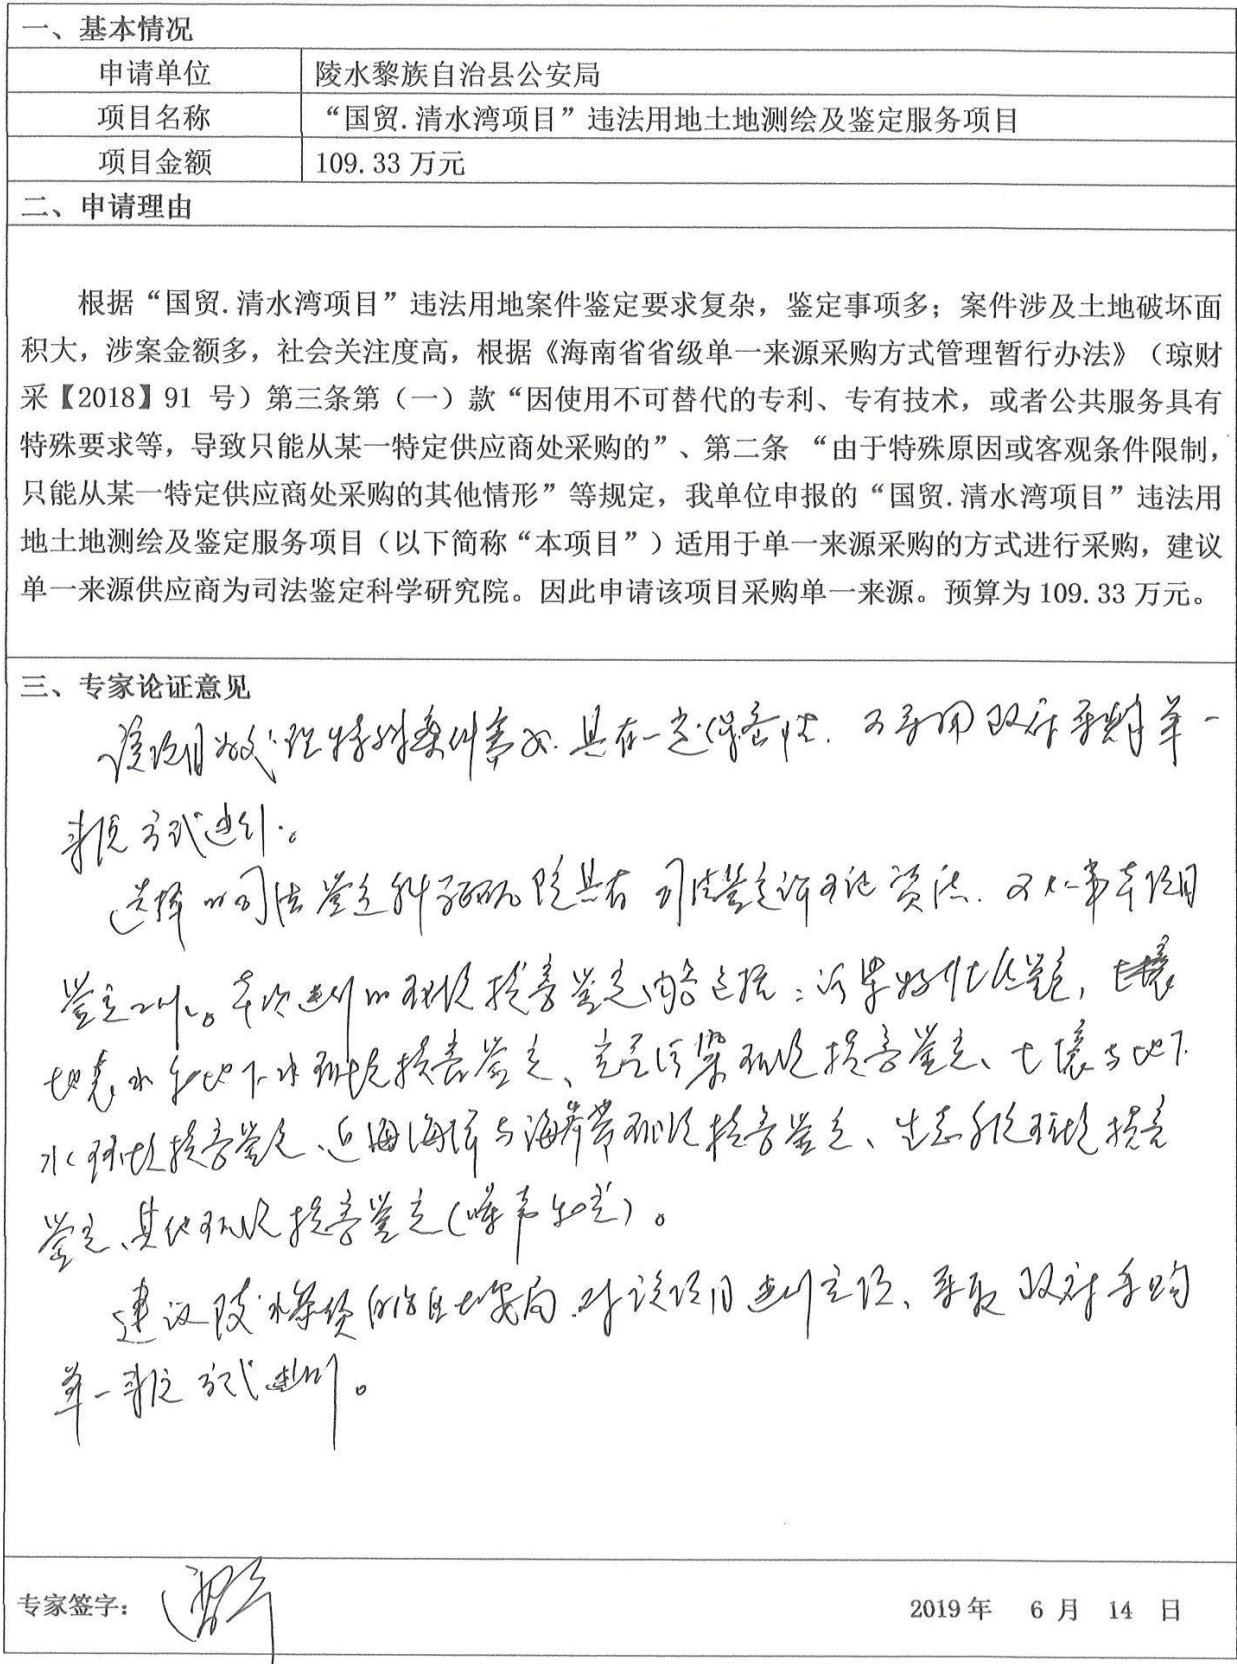 一、基本情况
申请单位 陵水黎族自治县公安局
项目名称 “国贸.清水湾项目”违法用地土地测绘及鉴定服务项目
项目金额 109.33 万元
二、申请理由
根据“国贸.清水湾项目”违法用地案件鉴定要求复杂，鉴定事项多；案件涉及土地破坏面
积大，涉案金额多，社会关注度高，根据《海南省省级单一来源采购方式管理暂行办法》（琼财
采【2018】91 号）第三条第（一）款“因使用不可替代的专利、专有技术，或者公共服务具有
特殊要求等，导致只能从某一特定供应商处采购的”、第二条 “由于特殊原因或客观条件限制，
只能从某一特定供应商处采购的其他情形”等规定，我单位申报的“国贸.清水湾项目”违法用
地土地测绘及鉴定服务项目（以下简称“本项目”）适用于单一来源采购的方式进行采购，建议
单一来源供应商为司法鉴定科学研究院。因此申请该项目采购单一来源。预算为 109.33 万元。
三、专家论证意见
该项目 特殊案件 具有一定 政府采购单一
来源方式进行。
选择的司法鉴定科学研究院具有司法鉴定许可证资质 本项目
鉴定工作。本次进行的环境损害鉴定内容包括：污染物性质鉴定，
地表水和地下水环境损害鉴定、空气污染环境损害鉴定、土壤与地下
水环境损害鉴定、近海海洋与海岸带环境损害鉴定、生态系统环境损害
鉴定、其他环境损害鉴定（噪声 ）。
建议陵水黎族自治县公安局对该项目进行立项、采取政府采购
单一来源方式进行。
专家签字：
2019年 6 月 14 日